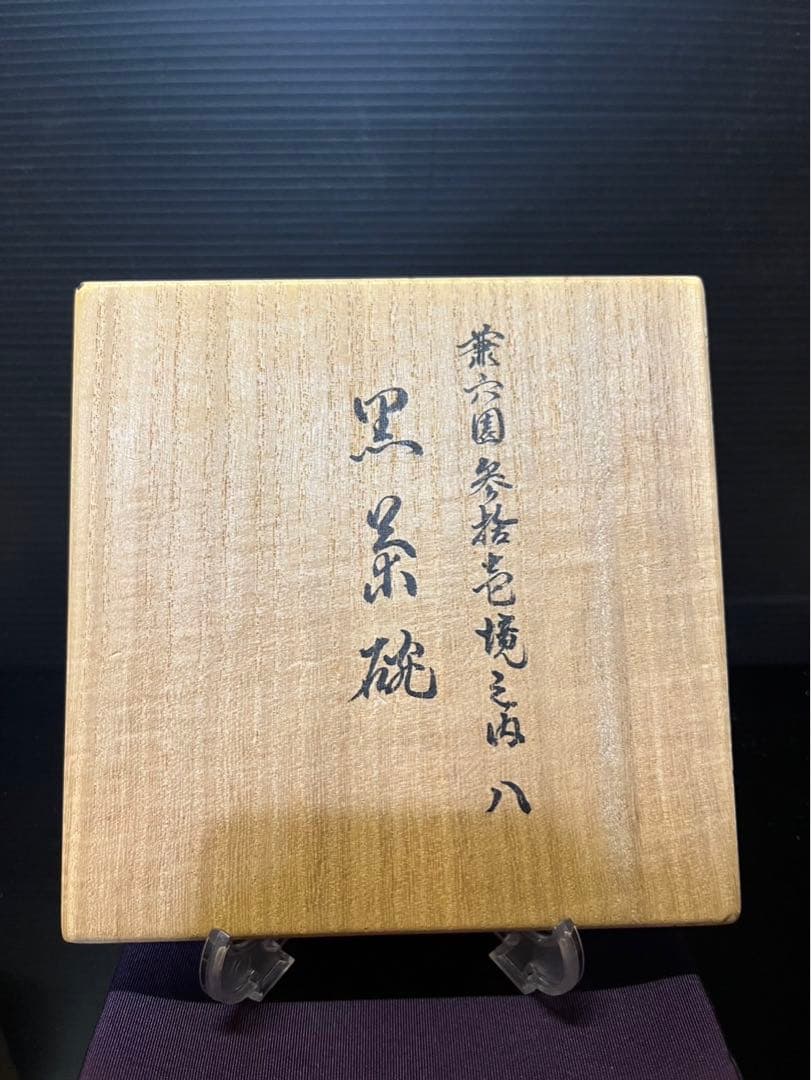 兼六園参拾壱境之内 八
黒茶碗